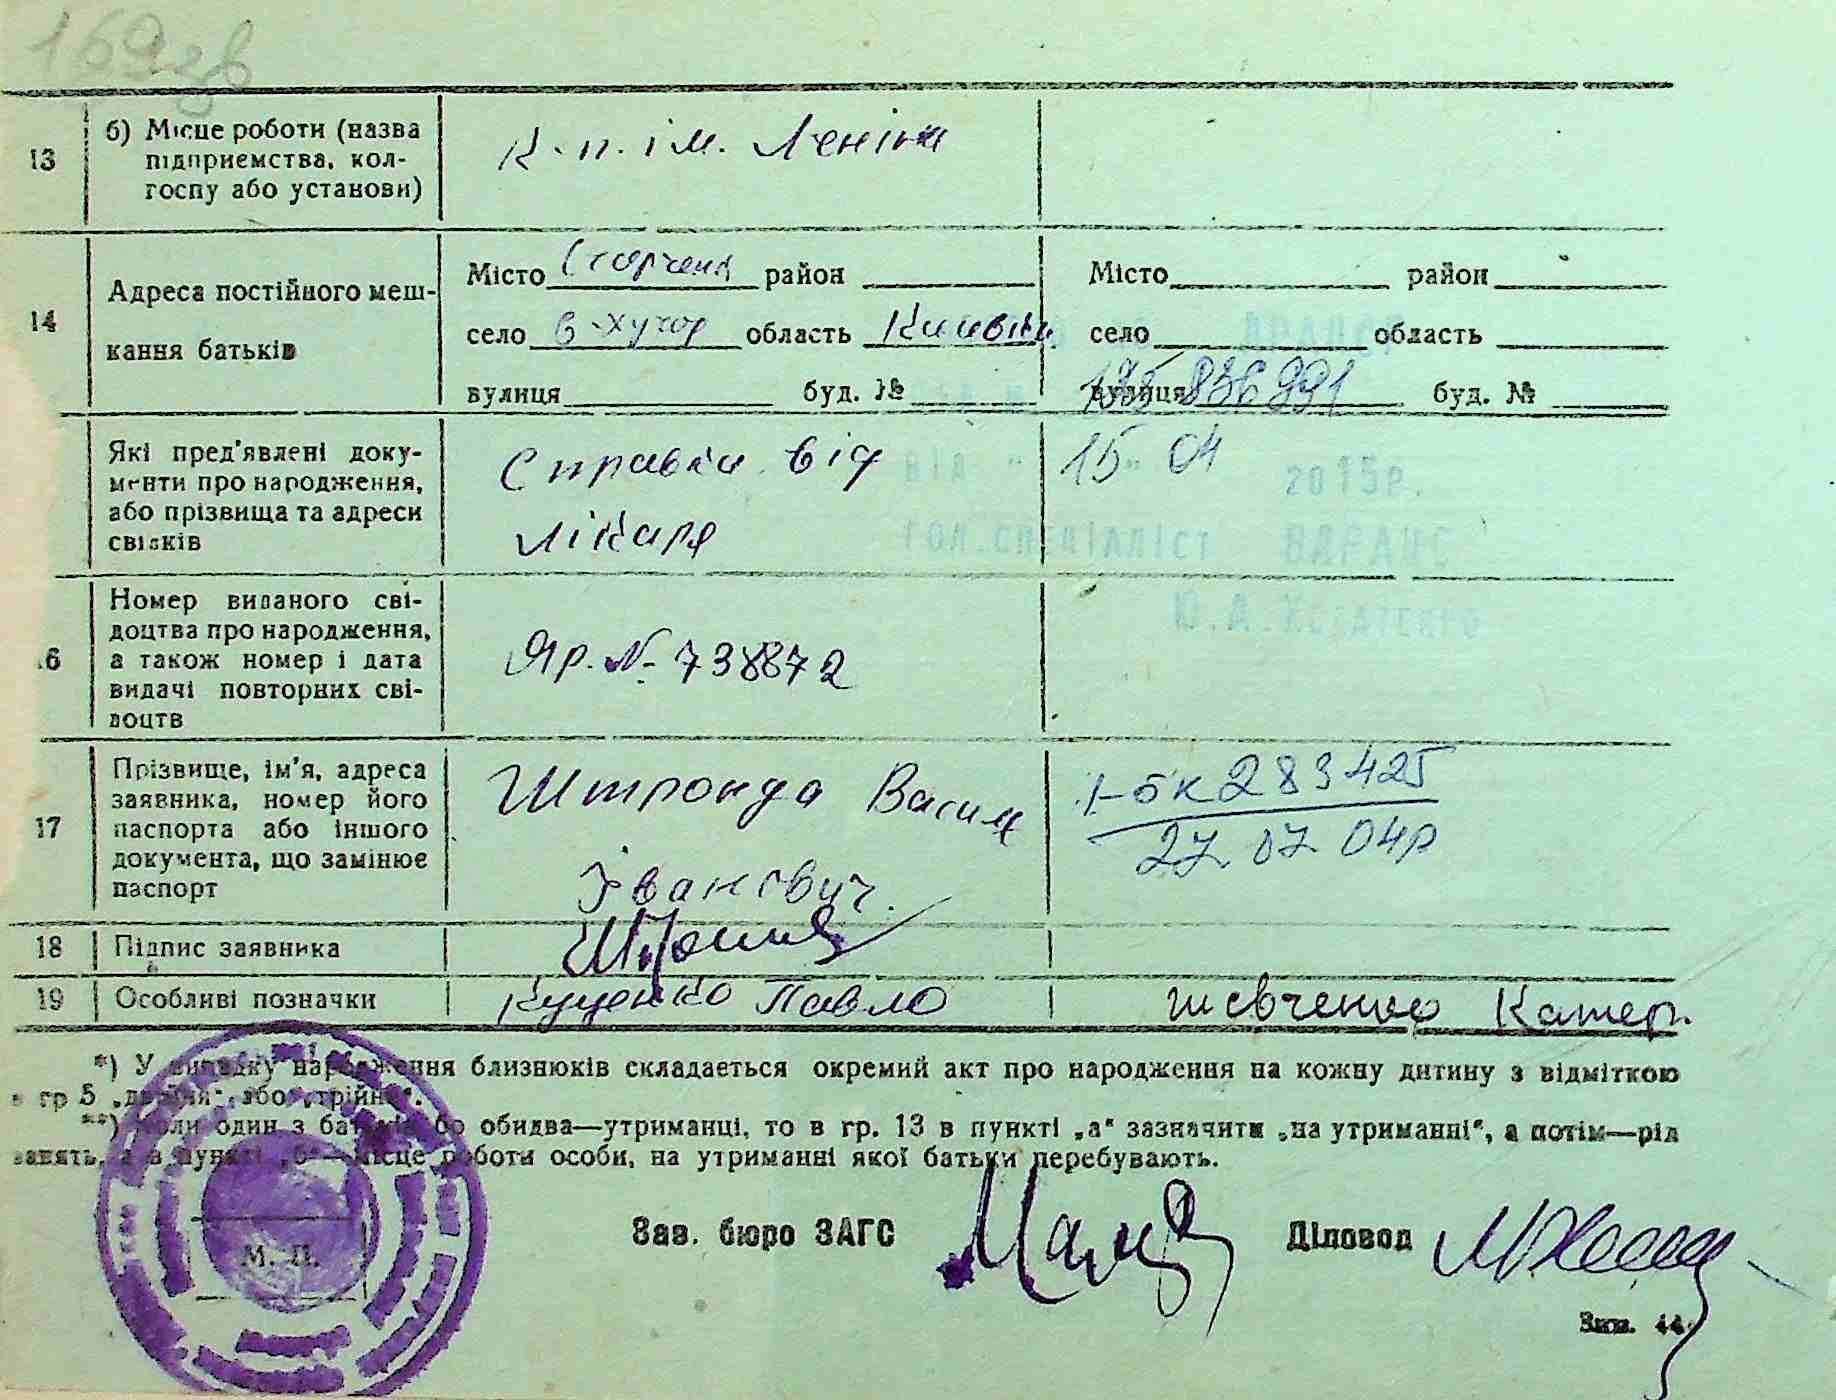 169зв
13
б) Місце роботи (назва
підприємства, кол-
госпу або установи)
К-п. ім. Леніна
14
Адреса постійного меш-
кання батьків
Місто район
село в-хутор область Київськ
вулиця буд. №
Місто район
село область
вулиця буд. №
195 836 991
Які пред'явлені доку-
менти про народження,
або прізвища та адреси
свідків
Справка від
лікаря
від "15" 04 2015р.
гол.спеціаліст ВДРАЦС
Ю.А.
6
Номер виданого сві-
доцтва про народження,
а також номер і дата
видачі повторних сві-
доцтв
Яр. № 738872
17
Прізвище, ім'я, адреса
заявника, номер його
паспорта або іншого
документа, що замінює
паспорт
Штронда Васил
Іванович.
І-бк 283425
27.07.04р
18
Підпис заявника
19
Особливі позначки
Куценко Павло
Шевченко Катер.
*) У випадку народження близнюків складається окремий акт про народження на кожну дитину з відміткою
в гр 5 „двійня“ або „трійня“.
**) Коли один з батьків бо обидва—утриманці, то в гр. 13 в пункті „а“ зазначити „на утриманні“, а потім—рід
занять, а в пункті „б“—місце роботи особи, на утриманні якої батьки перебувають.
М. П.
Зав. бюро ЗАГС
Діловод
Зам. 44